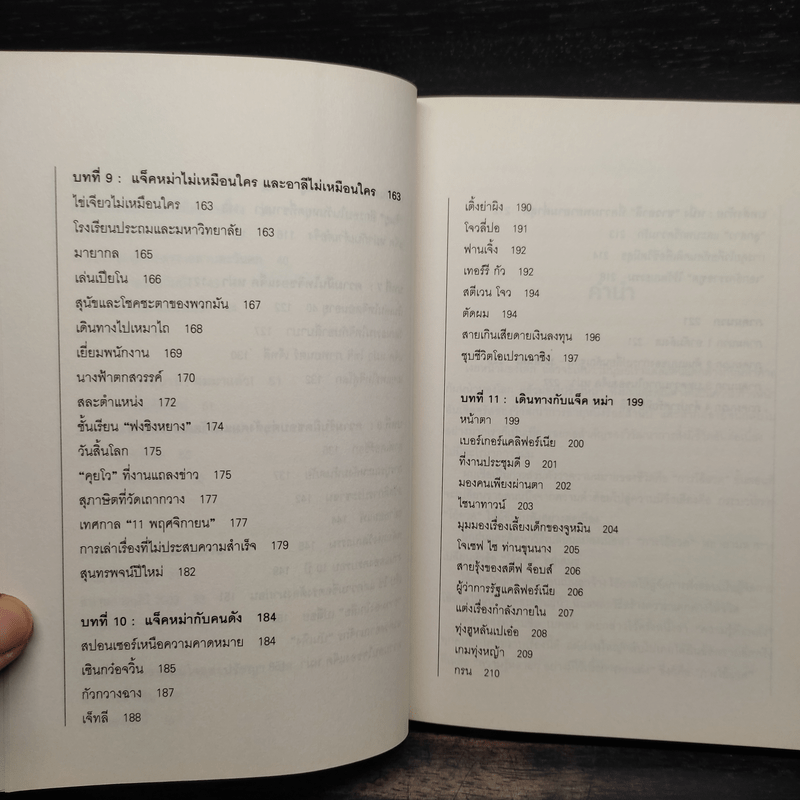 บทที่ 9 : แจ็คหม่าไม่เหมือนใคร และอาลีไม่เหมือนใคร 163
ไข่เจียวไม่เหมือนใคร 163
โรงเรียนประถมและมหาวิทยาลัย 163
มายากล 165
เล่นเปียโน 166
สุนัขและโชคชะตาของพวกมัน 167
เดินทางไปเหมาไถ 168
เยี่ยมพนักงาน 169
นางฟ้าตกสวรรค์ 170
สละตำแหน่ง 172
ชั้นเรียน “ฟงชิงหยาง” 174
วันสิ้นโลก 175
“คุยโว” ที่งานแถลงข่าว 175
สุภาษิตที่วัดเถากวาง 177
เทศกาล “11 พฤศจิกายน” 177
การเล่าเรื่องที่ไม่ประสบความสำเร็จ 179
สุนทรพจน์ปีใหม่ 182
บทที่ 10 : แจ็คหม่ากับคนดัง 184
สปอนเซอร์เหนือความคาดหมาย 184
เซินกว๋อจวิ้น 185
กัวกวางฉาง 187
เจ็ทลี 188
เติ้งย่าผิง 190
โจวลี่ปอ 191
ฟานเจิ้ง 192
เทอร์รี กัว 192
สตีเวน โจว 194
ตัดผม 194
สายเกินเสียดายเงินลงทุน 196
ชุบชีวิตโอเปราเฉาซิง 197
บทที่ 11 : เดินทางกับแจ็ค หม่า 199
หน้าตา 199
เบอร์เกอร์แคลิฟอร์เนีย 200
ที่งานประชุมดี 9 201
มองคนเพียงผ่านตา 202
ไชนาทาวน์ 203
มุมมองเรื่องเลี้ยงเด็กของจูหมิน 204
โจเซฟ ไช ท่านขุนนาง 205
สายรุ้งของสตีฟ จ็อบส์ 206
ผู้ว่าการรัฐแคลิฟอร์เนีย 206
แต่งเรื่องกำลังภายใน 207
ทุ่งฮูหลันเปเอ่อ 208
เกมทุ่งหญ้า 209
กรน 210